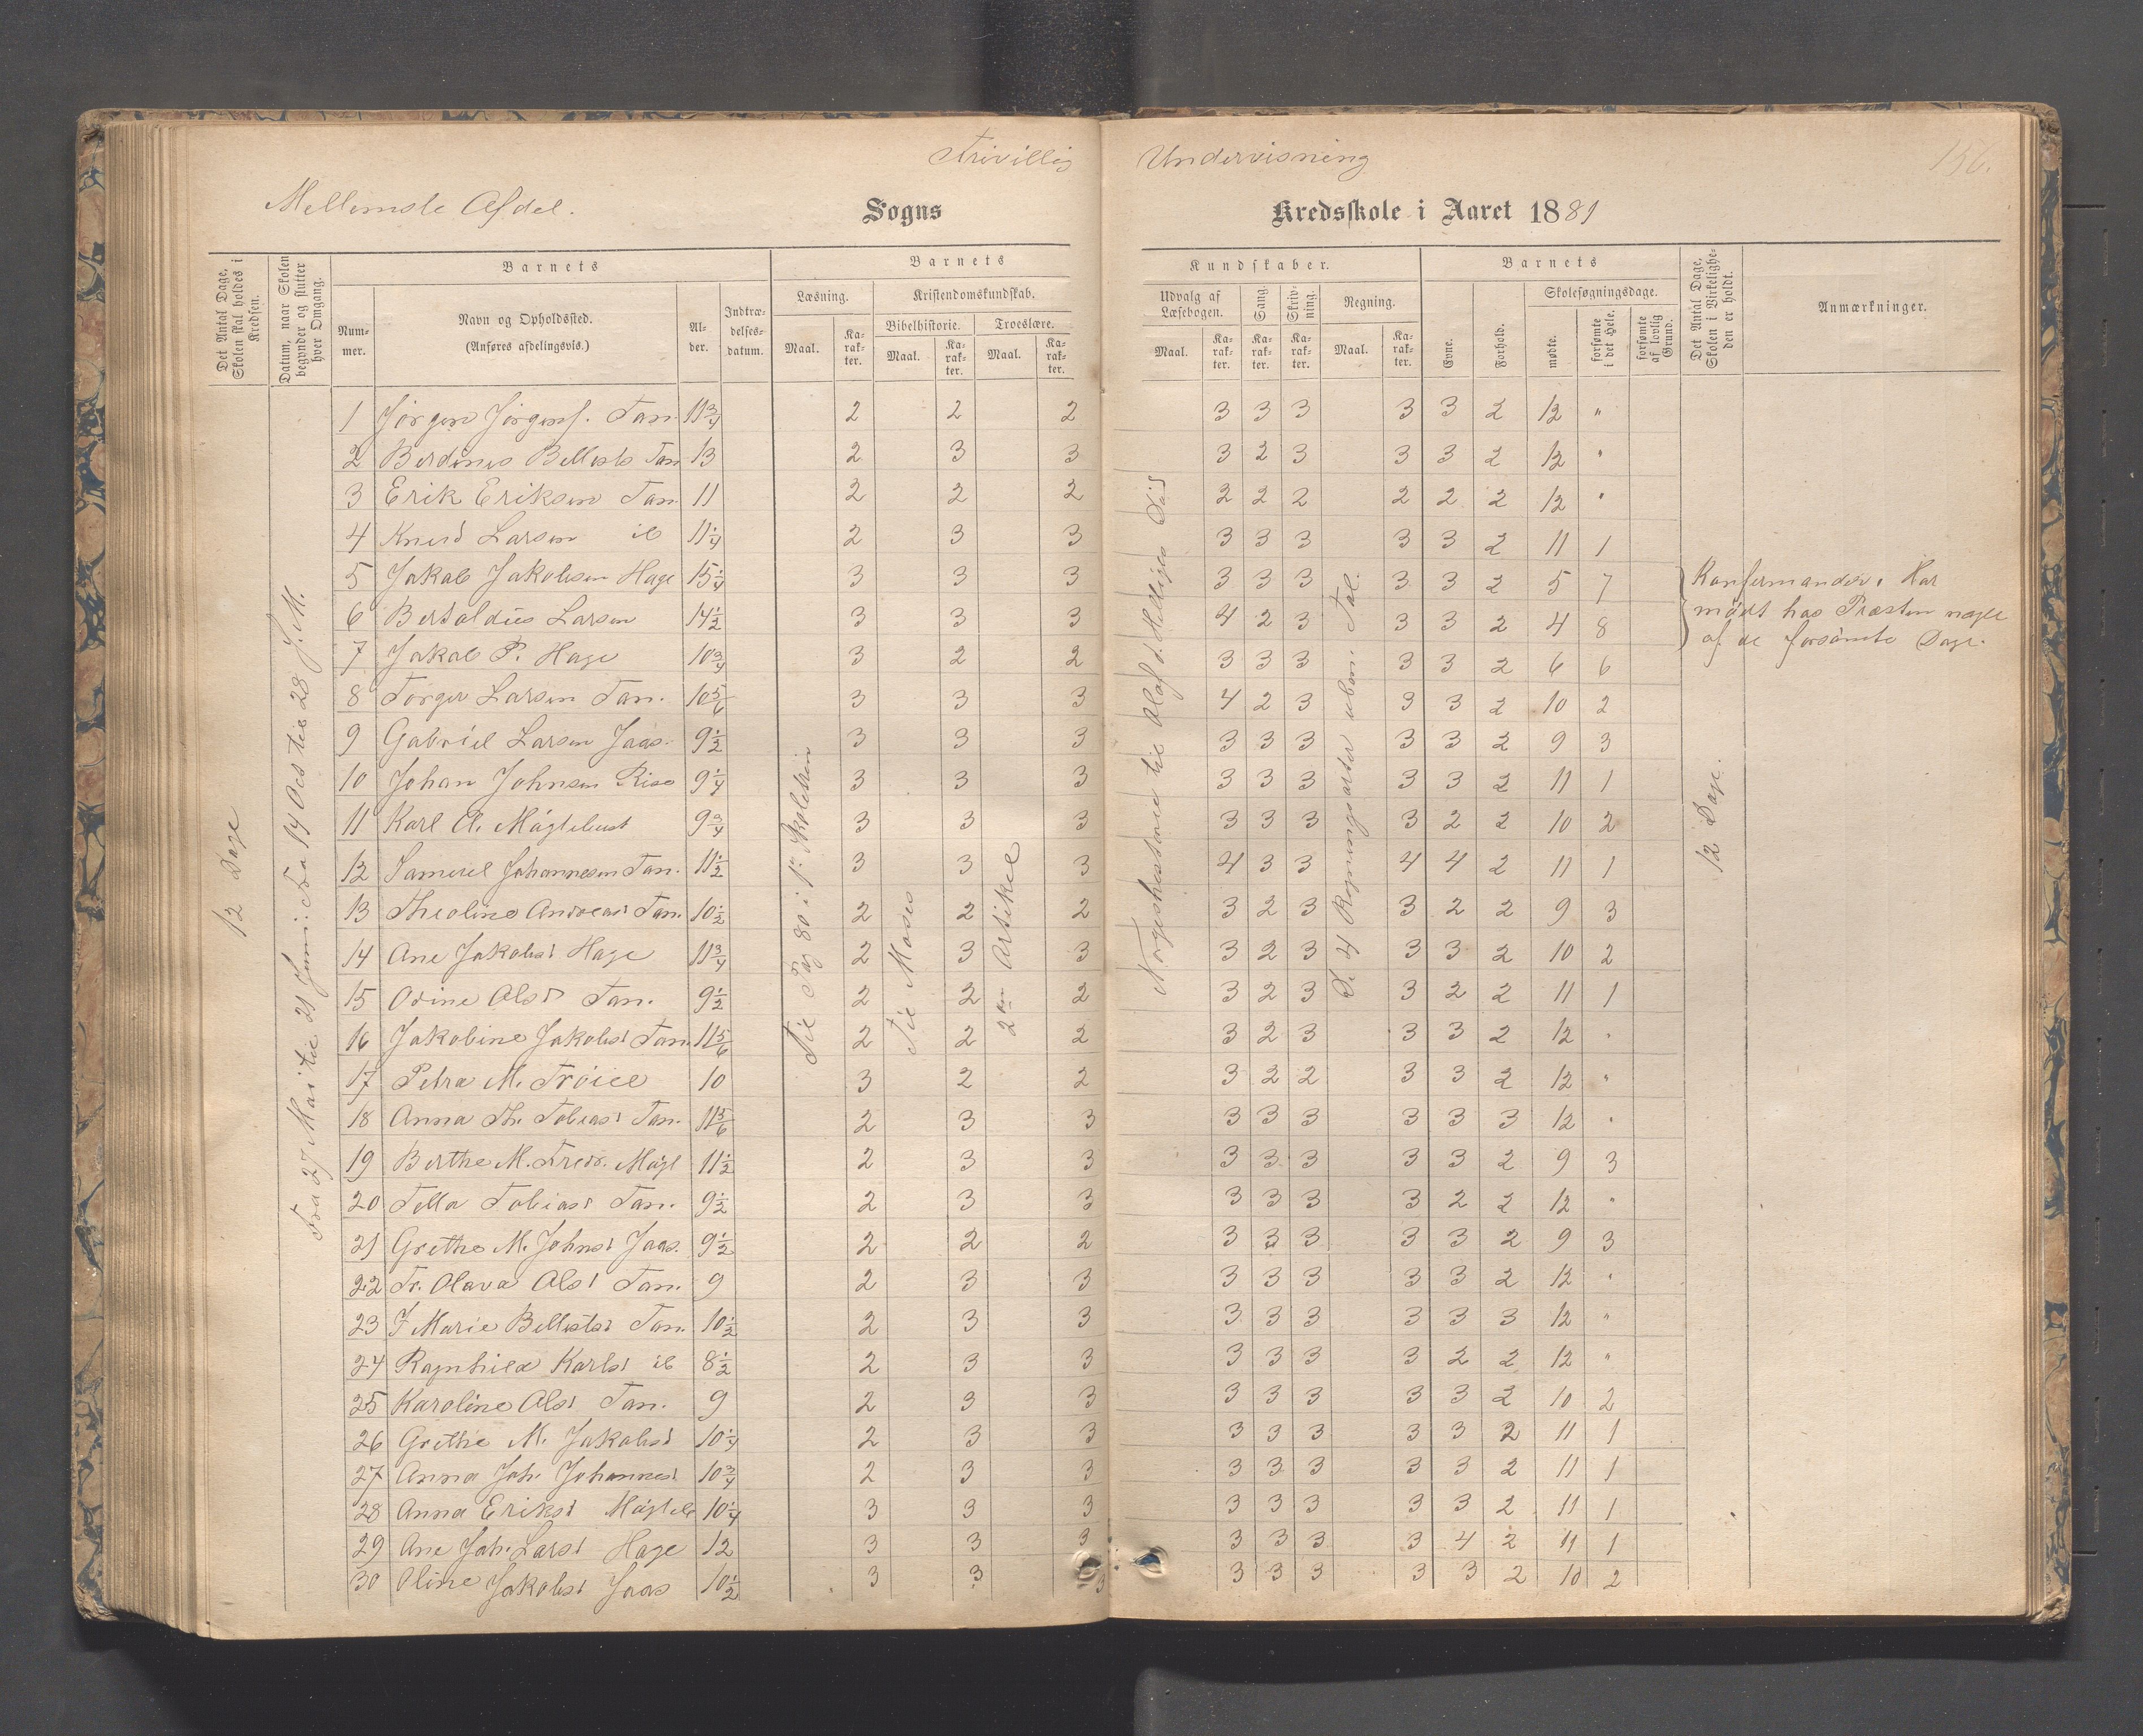 Frivillig Undervisning
156.
Mellemste Afdel. Sogns Kredsskole i Aaret 1881
Det Antal Dage, Skolen skal holdes i Kredsen.
Datum, naar Skolen begynder og slutter hver Omgang.
Barnets
Nummer.
Navn og Opholdssted.
(Anføres afdelingsvis.)
Alder.
Indtrædelsesdatum.
Barnets Kundskaber.
Læsning. Maal. Karakter.
Kristendomskundskab.
Bibelhistorie. Maal. Karakter.
Troeslære. Maal. Karakter.
Udvalg af Læsebogen. Maal. Karakter.
Sang. Karakter.
Skrivning. Karakter.
Regning. Maal. Karakter.
Barnets
Evne.
Forhold.
Skolesøgningsdage.
mødte.
forsømte i det Hele.
forsømte af lovlig Grund.
Det Antal Dage, Skolen i Virkeligheden er holdt.
Anmærkninger.
12 Dage
Fra 27 Mai til 21 Juni: Fra 19 Oct til 28 s. M.
Til Pag 80 i 1ste Skoletrin
Til Moses
2den Artikel
Norgeshistorie til Olaf d. Hellige
De 4 Regningsarter ubenv. Tal.
12 Dage.
1 Jørgen Jørgens. Tan. 11 3/4 2 2 2 3 3 3 3 3 2 12 "
2 Berdines Bellests Tan 13 2 3 3 3 2 3 3 3 2 12 "
3 Erik Eriksen Tan. 11 2 2 2 2 2 2 2 2 2 12 "
4 Knud Larsen ib 11 1/4 2 3 3 3 3 3 3 3 2 11 1
5 Jakob Jakobsen Hage 15 1/4 3 3 3 3 3 3 3 3 2 5 7
6 Bertoldus Larsen 14 1/2 3 3 3 4 2 3 3 3 2 4 8
Konfirmander. Har
mødt hos Præsten nogle
af de forsømte Dage.
7 Jakob P. Hage 10 3/4 3 2 2 3 3 3 3 3 2 6 6
8 Torger Larsen Tan. 10 5/6 3 3 3 4 2 3 3 3 2 10 2
9 Gabriel Larsen Jaas. 9 1/2 3 3 3 3 3 3 3 3 2 9 3
10 Johan Johnsen Risa 9 1/4 3 3 3 3 3 3 3 3 2 11 1
11 Karl O. Måglebust 9 3/4 3 3 3 3 3 3 3 2 2 10 2
12 Samuel Johannesen Tan. 11 1/2 3 3 3 4 3 3 4 4 2 11 1
13 Theoline Andreasd Tan. 10 1/2 2 2 2 3 2 3 3 2 2 9 3
14 Ane Jakobsd Hage 11 3/4 2 3 3 3 2 3 3 3 2 10 2
15 Odine Olsd Tan. 9 1/2 2 2 2 3 2 3 3 2 2 11 1
16 Jakobine Jakobsd Tan. 11 5/6 2 2 2 3 2 3 3 3 2 12 "
17 Petra M. Frøiel 10 3 2 2 3 2 2 3 3 2 12 "
18 Anna Th. Tobiasd Tan. 11 5/6 2 3 3 3 3 3 3 3 3 12 "
19 Berthe M. Fredr. Mågl 11 1/2 2 3 3 3 3 3 3 3 2 9 3
20 Tella Tobiasd Tan. 9 1/2 2 3 3 3 3 3 3 2 2 12 "
21 Grethe M. Johnsd Jaas. 9 1/2 2 2 2 3 3 3 3 3 2 9 3
22 Tr. Olava Olsd Tan. 9 2 3 3 3 3 3 3 3 2 12 "
23 J Marie Bellestsd Tan. 10 1/2 2 3 3 3 3 3 3 3 3 12 "
24 Ragnhild Karlsd ib 8 1/2 2 3 3 3 3 3 3 2 2 12 "
25 Karoline Olsd Tan. 9 2 3 3 3 3 3 3 3 2 10 2
26 Grethe M. Jakobsd 10 1/4 2 3 3 3 3 3 3 3 2 11 1
27 Anna Joh. Johannesd 10 3/4 2 3 3 3 3 3 3 3 2 11 1
28 Anna Eriksd Mågleb 10 1/4 3 3 3 3 3 3 3 3 2 11 1
29 Ane Joh. Larsd Hage 12 3 3 3 3 3 3 3 4 2 11 1
30 Oline Jakobsd Jaas 10 1/2 3 3 3 3 3 3 3 3 2 10 2